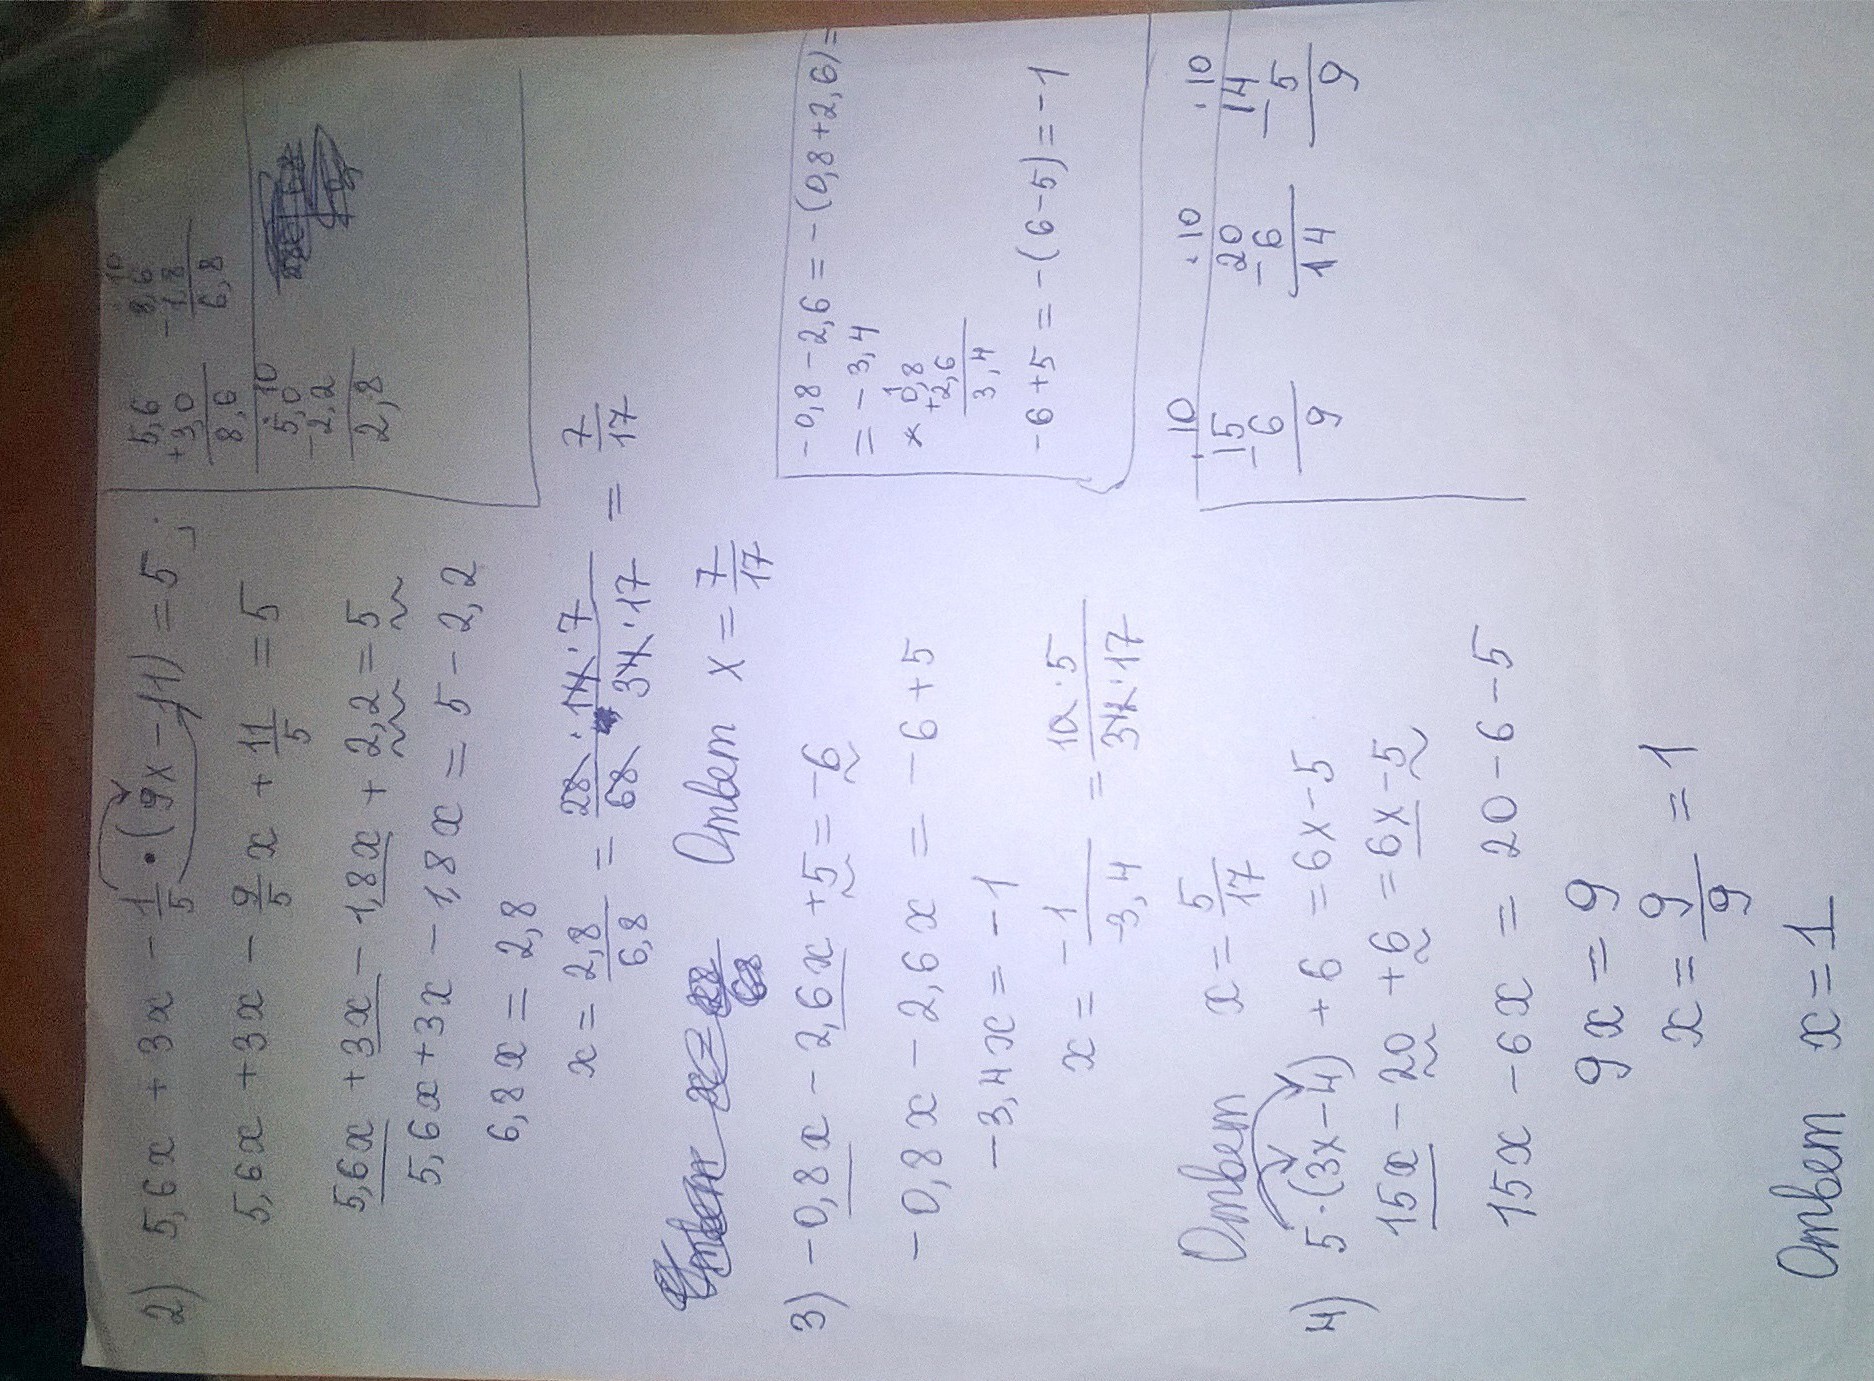 2) 5,6x + 3x - 1/5 · (9x - 11) = 5;
5,6x + 3x - 9/5 x + 11/5 = 5
5,6x + 3x - 1,8x + 2,2 = 5
5,6x + 3x - 1,8x = 5 - 2,2
6,8x = 2,8
x = 2,8/6,8 = 28/68 · 14 · 7/34 · 17 = 7/17
Ответ x = 7/17
5,6
+3,0
8,6
10
8,6
-1,8
6,8
10
5,0
-2,2
2,8
3) -0,8x - 2,6x + 5 = -6
-0,8x - 2,6x = -6 + 5
-3,4x = -1
x = -1/-3,4 = 10 · 5/34 · 17
Ответ x = 5/17
-0,8 - 2,6 = -(0,8 + 2,6) =
= -3,4
1
x 0,8
+2,6
3,4
-6 + 5 = -(6 - 5) = -1
4) 5 · (3x - 4) + 6 = 6x - 5
15x - 20 + 6 = 6x - 5
15x - 6x = 20 - 6 - 5
9x = 9
x = 9/9 = 1
Ответ x = 1
10
15
-6
9
10
20
-6
14
10
14
-5
9